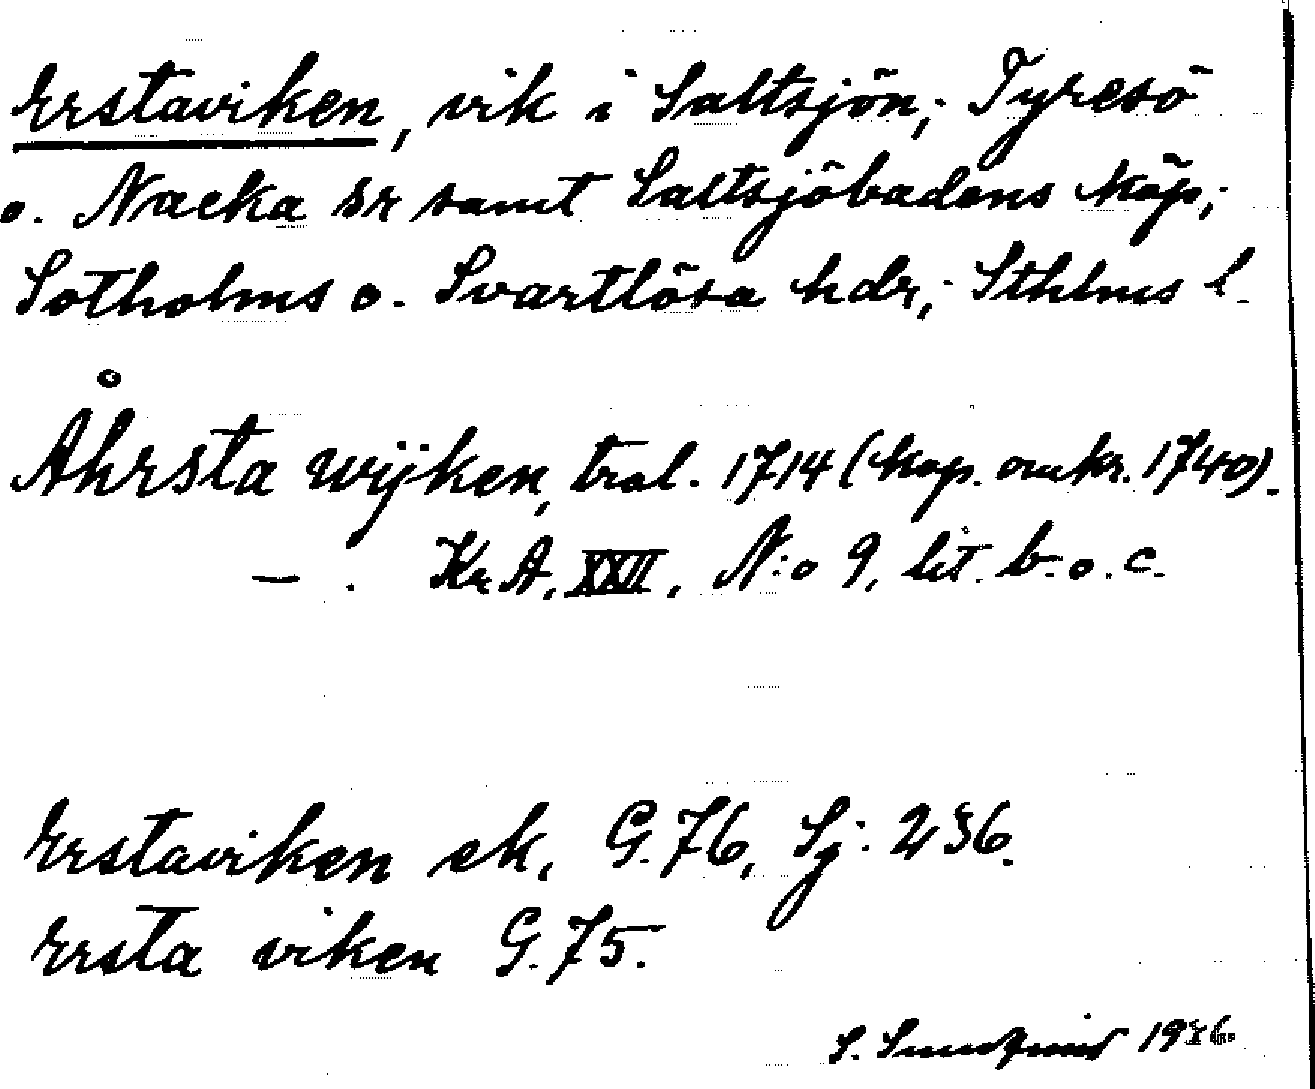 Erstaviken, vik i Saltsjön; Tyresö
o. Nacka sr samt Saltsjöbadens köp;
Sotholms o. Svartlösa hdr; Sthlms l.
Åhrsta wijken, tral. 1714 (kop. omkr. 1740).
— . KrA, XXII, N:o 9, lit. b. o. c.
Erstaviken ek. G.76, Sj: 236.
Ersta viken G.75.
S. 19